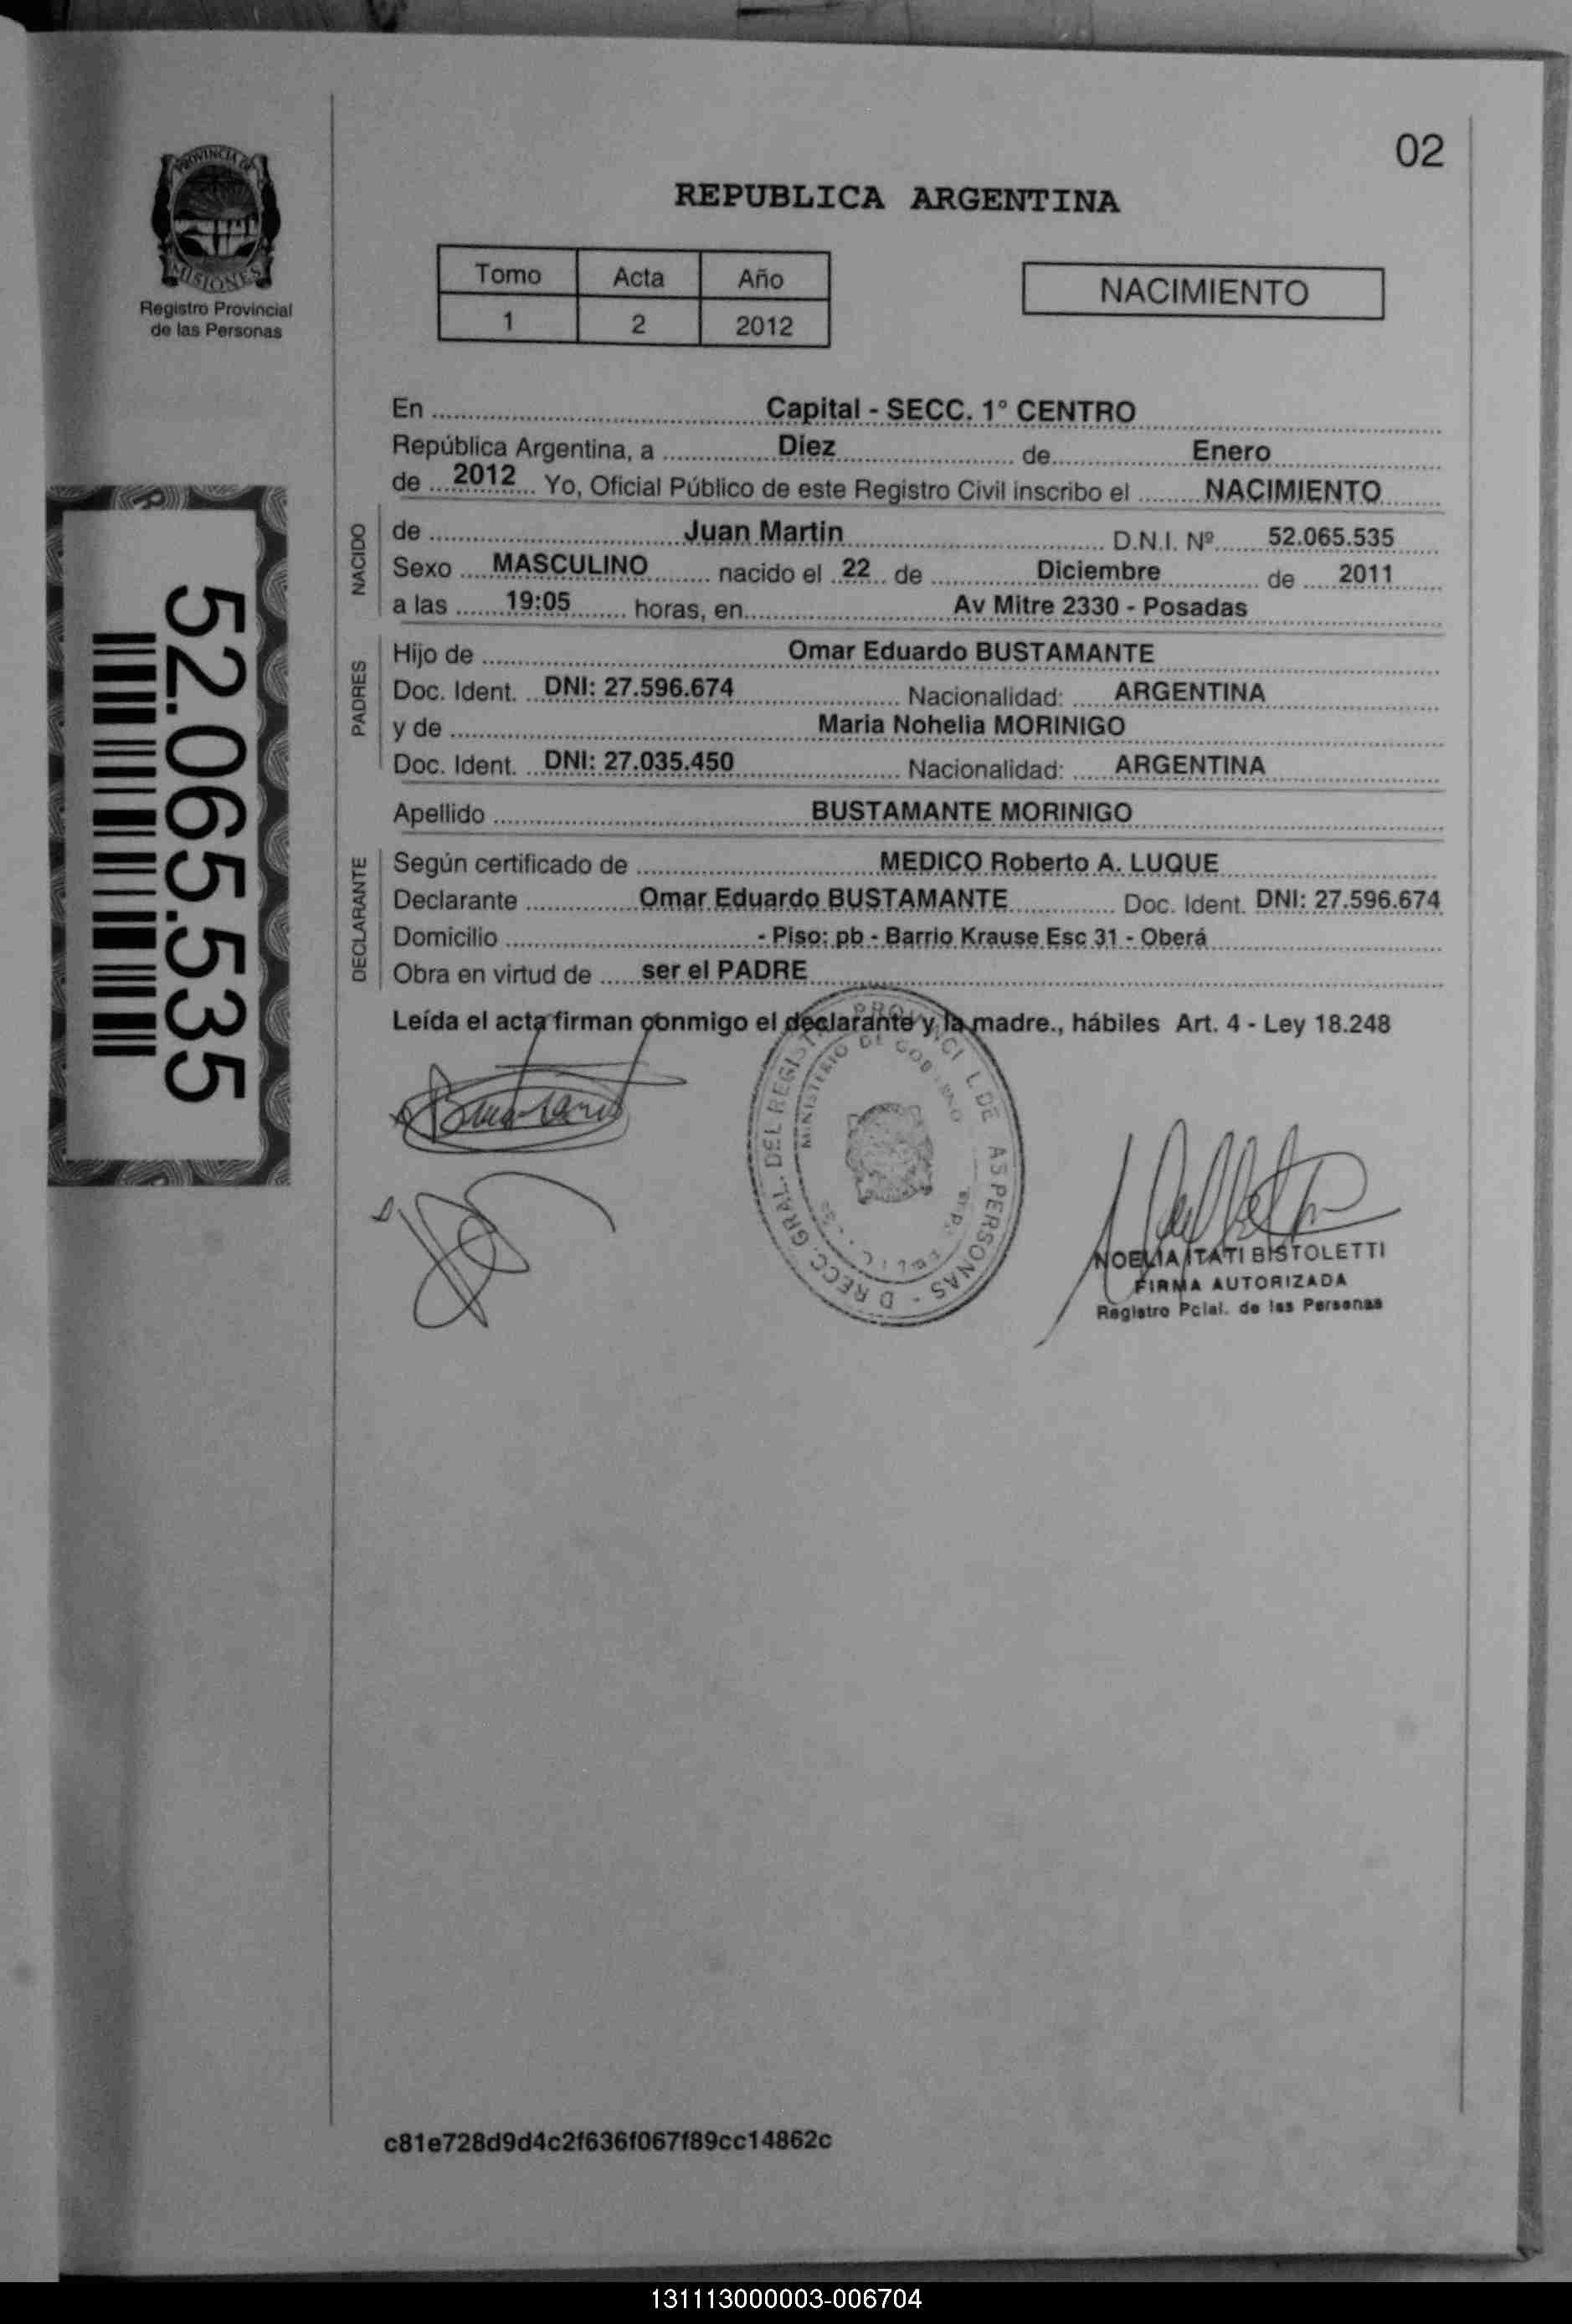 02
PROVINCIA DE
MISIONES
Registro Provincial
de las Personas
REPUBLICA ARGENTINA
Tomo Acta Año
1 2 2012
NACIMIENTO
En Capital - SECC. 1° CENTRO
República Argentina, a Diez de Enero
de 2012 Yo, Oficial Público de este Registro Civil inscribo el NACIMIENTO
NACIDO
de Juan Martin D.N.I. Nº 52.065.535
Sexo MASCULINO nacido el 22 de Diciembre de 2011
a las 19:05 horas, en Av Mitre 2330 - Posadas
PADRES
Hijo de Omar Eduardo BUSTAMANTE
Doc. Ident. DNI: 27.596.674 Nacionalidad: ARGENTINA
y de Maria Nohelia MORINIGO
Doc. Ident. DNI: 27.035.450 Nacionalidad: ARGENTINA
Apellido BUSTAMANTE MORINIGO
DECLARANTE
Según certificado de MEDICO Roberto A. LUQUE
Declarante Omar Eduardo BUSTAMANTE Doc. Ident. DNI: 27.596.674
Domicilio - Piso: pb - Barrio Krause Esc 31 - Oberá
Obra en virtud de ser el PADRE
Leída el acta firman conmigo el declarante y la madre., hábiles Art. 4 - Ley 18.248
52.065.535
NOELIA ITATI BISTOLETTI
FIRMA AUTORIZADA
Registro Pcial. de las Personas
c81e728d9d4c2f636f067f89cc14862c
131113000003-006704